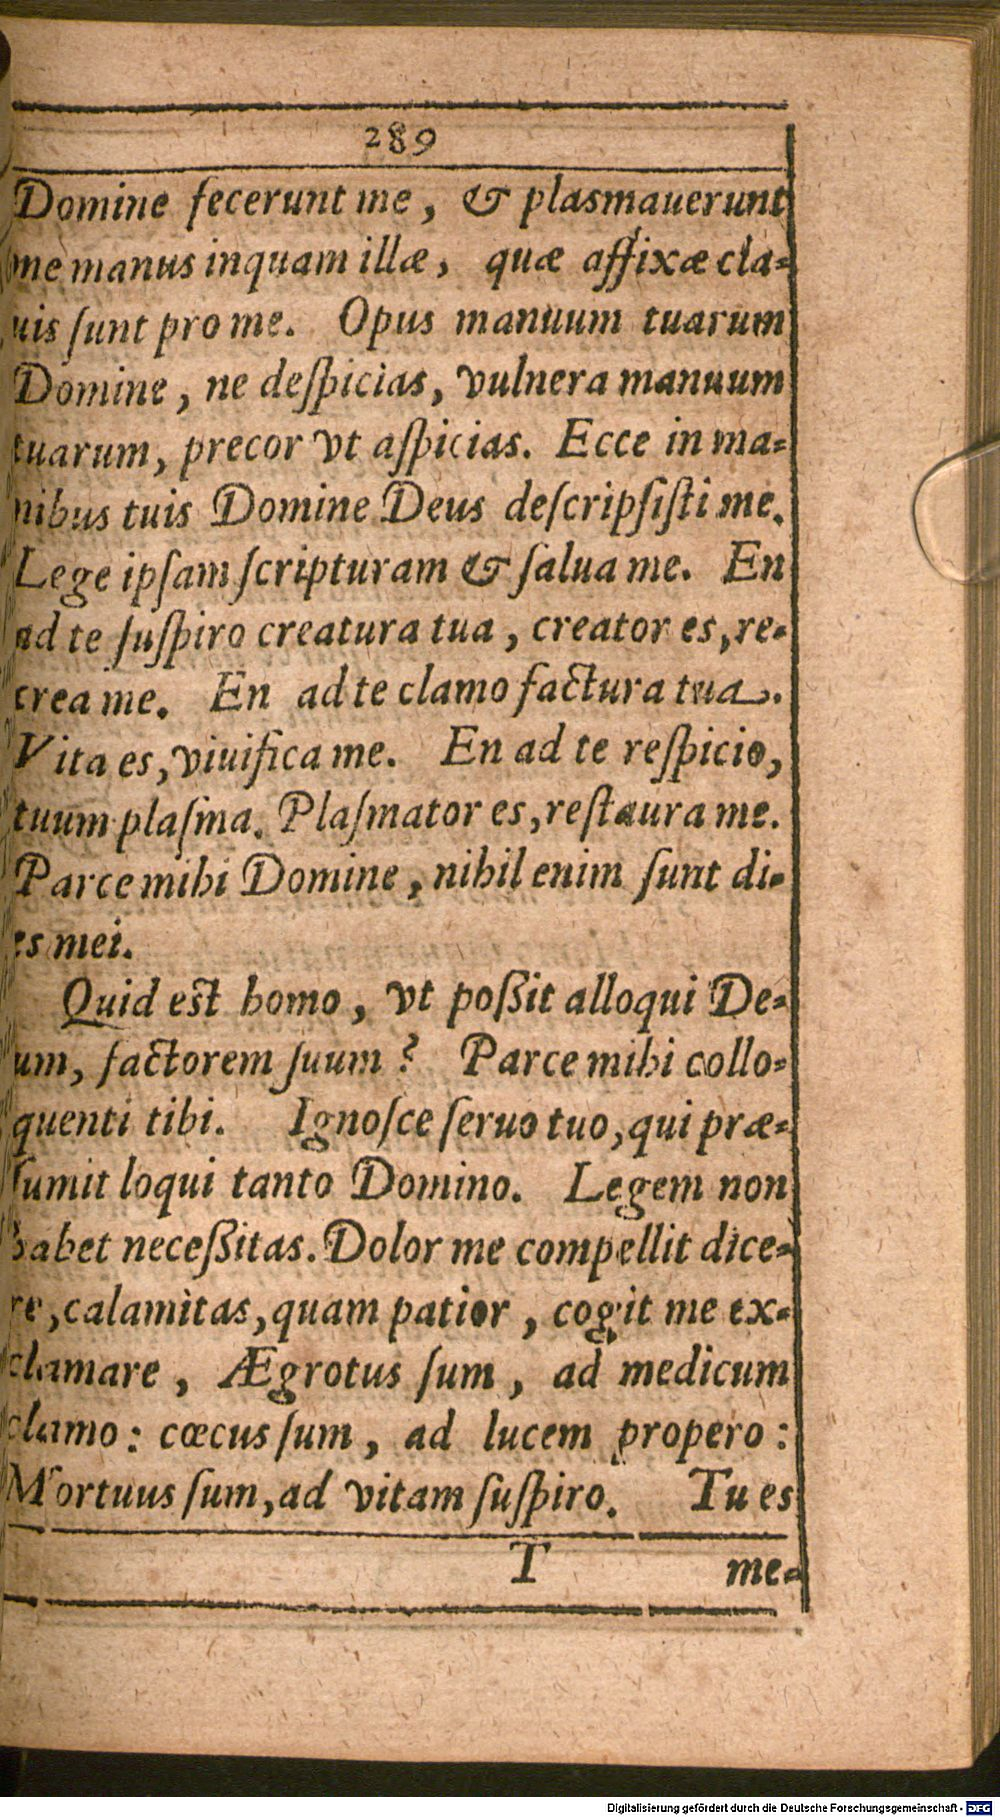 289
Domine fecerunt me, & plasmauerunt
me manus inquam illæ, quæ affixæ cla-
uis ſunt pro me. Opus manuum tuarum
Domine, ne deſpicias, vulnera manuum
tuarum, precor vt aſpicias. Ecce in ma-
nibus tuis Domine Deus deſcripſiſti me.
Lege ipſam ſcripturam & ſalua me. En
ad te ſuſpiro creatura tua, creator es, re-
crea me. En ad te clamo factura tua.
Vita es, viuifica me. En ad te reſpicio,
tuum plaſma. Plaſmator es, reſtaura me.
Parce mihi Domine, nihil enim ſunt di-
es mei.
Quid eſt homo, vt poßit alloqui De-
um, factorem ſuum? Parce mihi collo-
quenti tibi. Ignoſce ſeruo tuo, qui præ-
ſumit loqui tanto Domino. Legem non
habet neceßitas. Dolor me compellit dice-
re, calamitas, quam patior, cogit me ex-
clamare, Ægrotus ſum, ad medicum
clamo: cœcus ſum, ad lucem propero:
Mortuus ſum, ad vitam ſuſpiro. Tu es
T me-
Digitalisierung gefördert durch die Deutsche Forschungsgemeinschaft - DFG